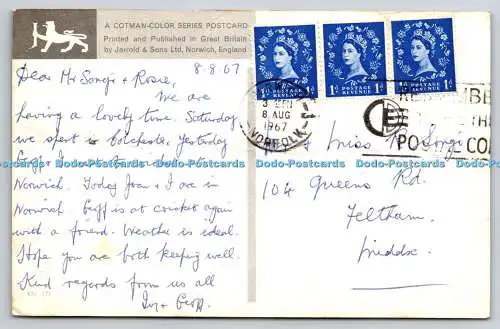 A COTMAN-COLOR SERIES POSTCARD
Printed and Published in Great Britain
by Jarrold & Sons Ltd, Norwich, England
8-8-67
Dear Mr Song + Rosie,
We are
having a lovely time. Saturday
we spent in Colchester, yesterday
Geoff
Norwich. Today Joan + I are in
Norwich. Geoff is at cricket again
with a friend. Weather is ideal.
Hope you are both keeping well.
Kind regards from us all
Joy + Geoff
1D POSTAGE REVENUE 1D
1D POSTAGE REVENUE 1D
1D POSTAGE REVENUE 1D
8 AUG
1967
NORFOLK
POST CO
+ Miss R
104 Queens Rd.
Feltham,
Middx.
Dodo-Postcards Dodo-Postcards Dodo-Postcards Dodo-Postcards